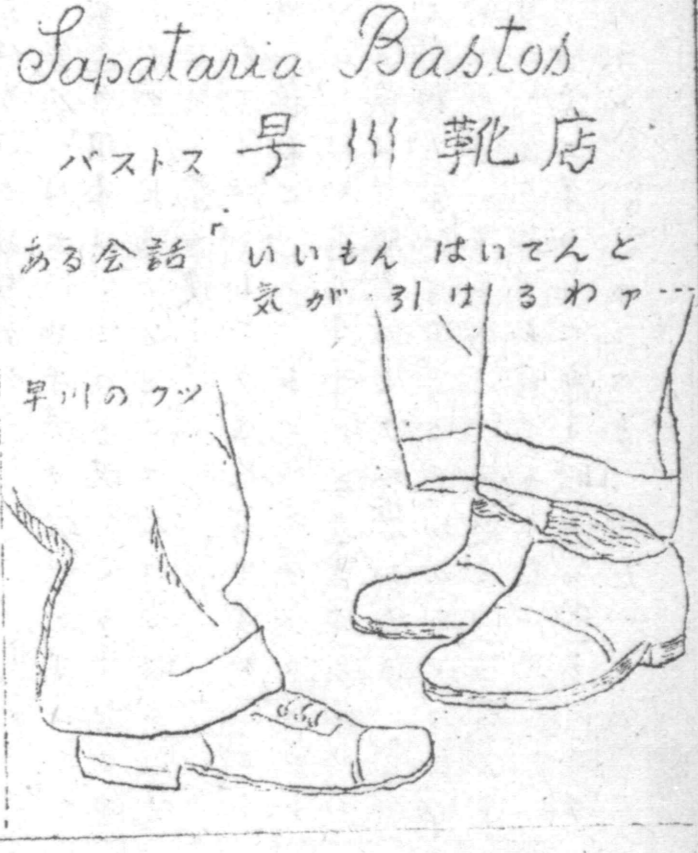 Sapataria Bastos
バストス 早川靴店
ある会話「いいもん はいてんと
気が引けるわァ…
早川のクツ